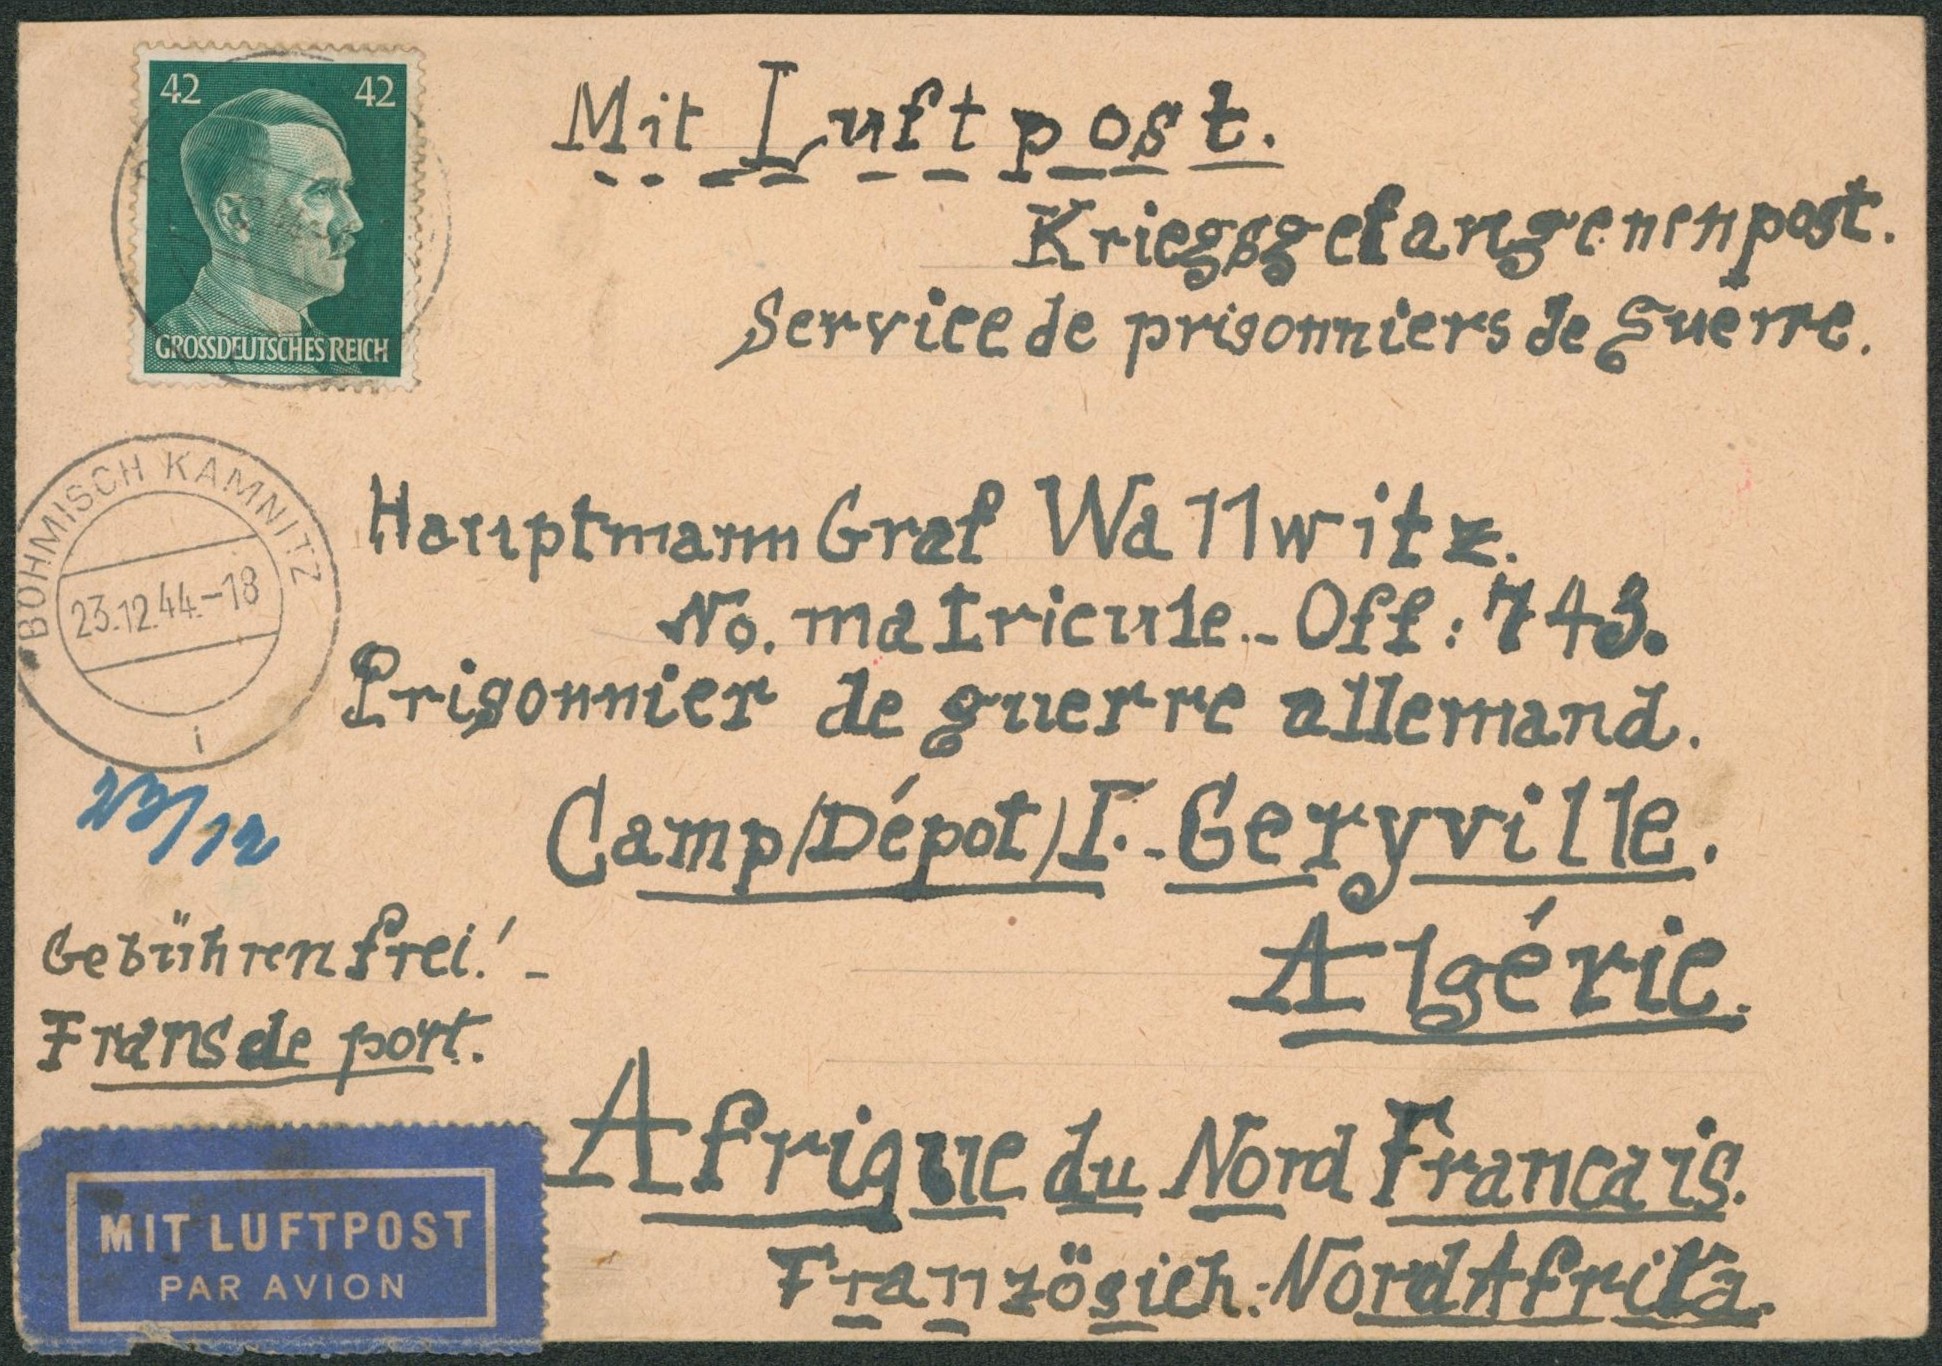 42 42
GROSSDEUTSCHES REICH
Mit Luftpost.
Kriegsgefangenenpost.
Service de prisonniers de guerre.
BÖHMISCH KAMNITZ
23.12.44.-18
i
Hauptmann Graf Wallwitz.
No. matricule.- Off: 743.
Prisonnier de guerre allemand.
23/12
Camp/Dépot/I.-Geryville.
Gebührenfrei! -
Algérie.
Frans de port.
Afrique du Nord Francais.
MIT LUFTPOST
PAR AVION
Französich:NordAfrika.